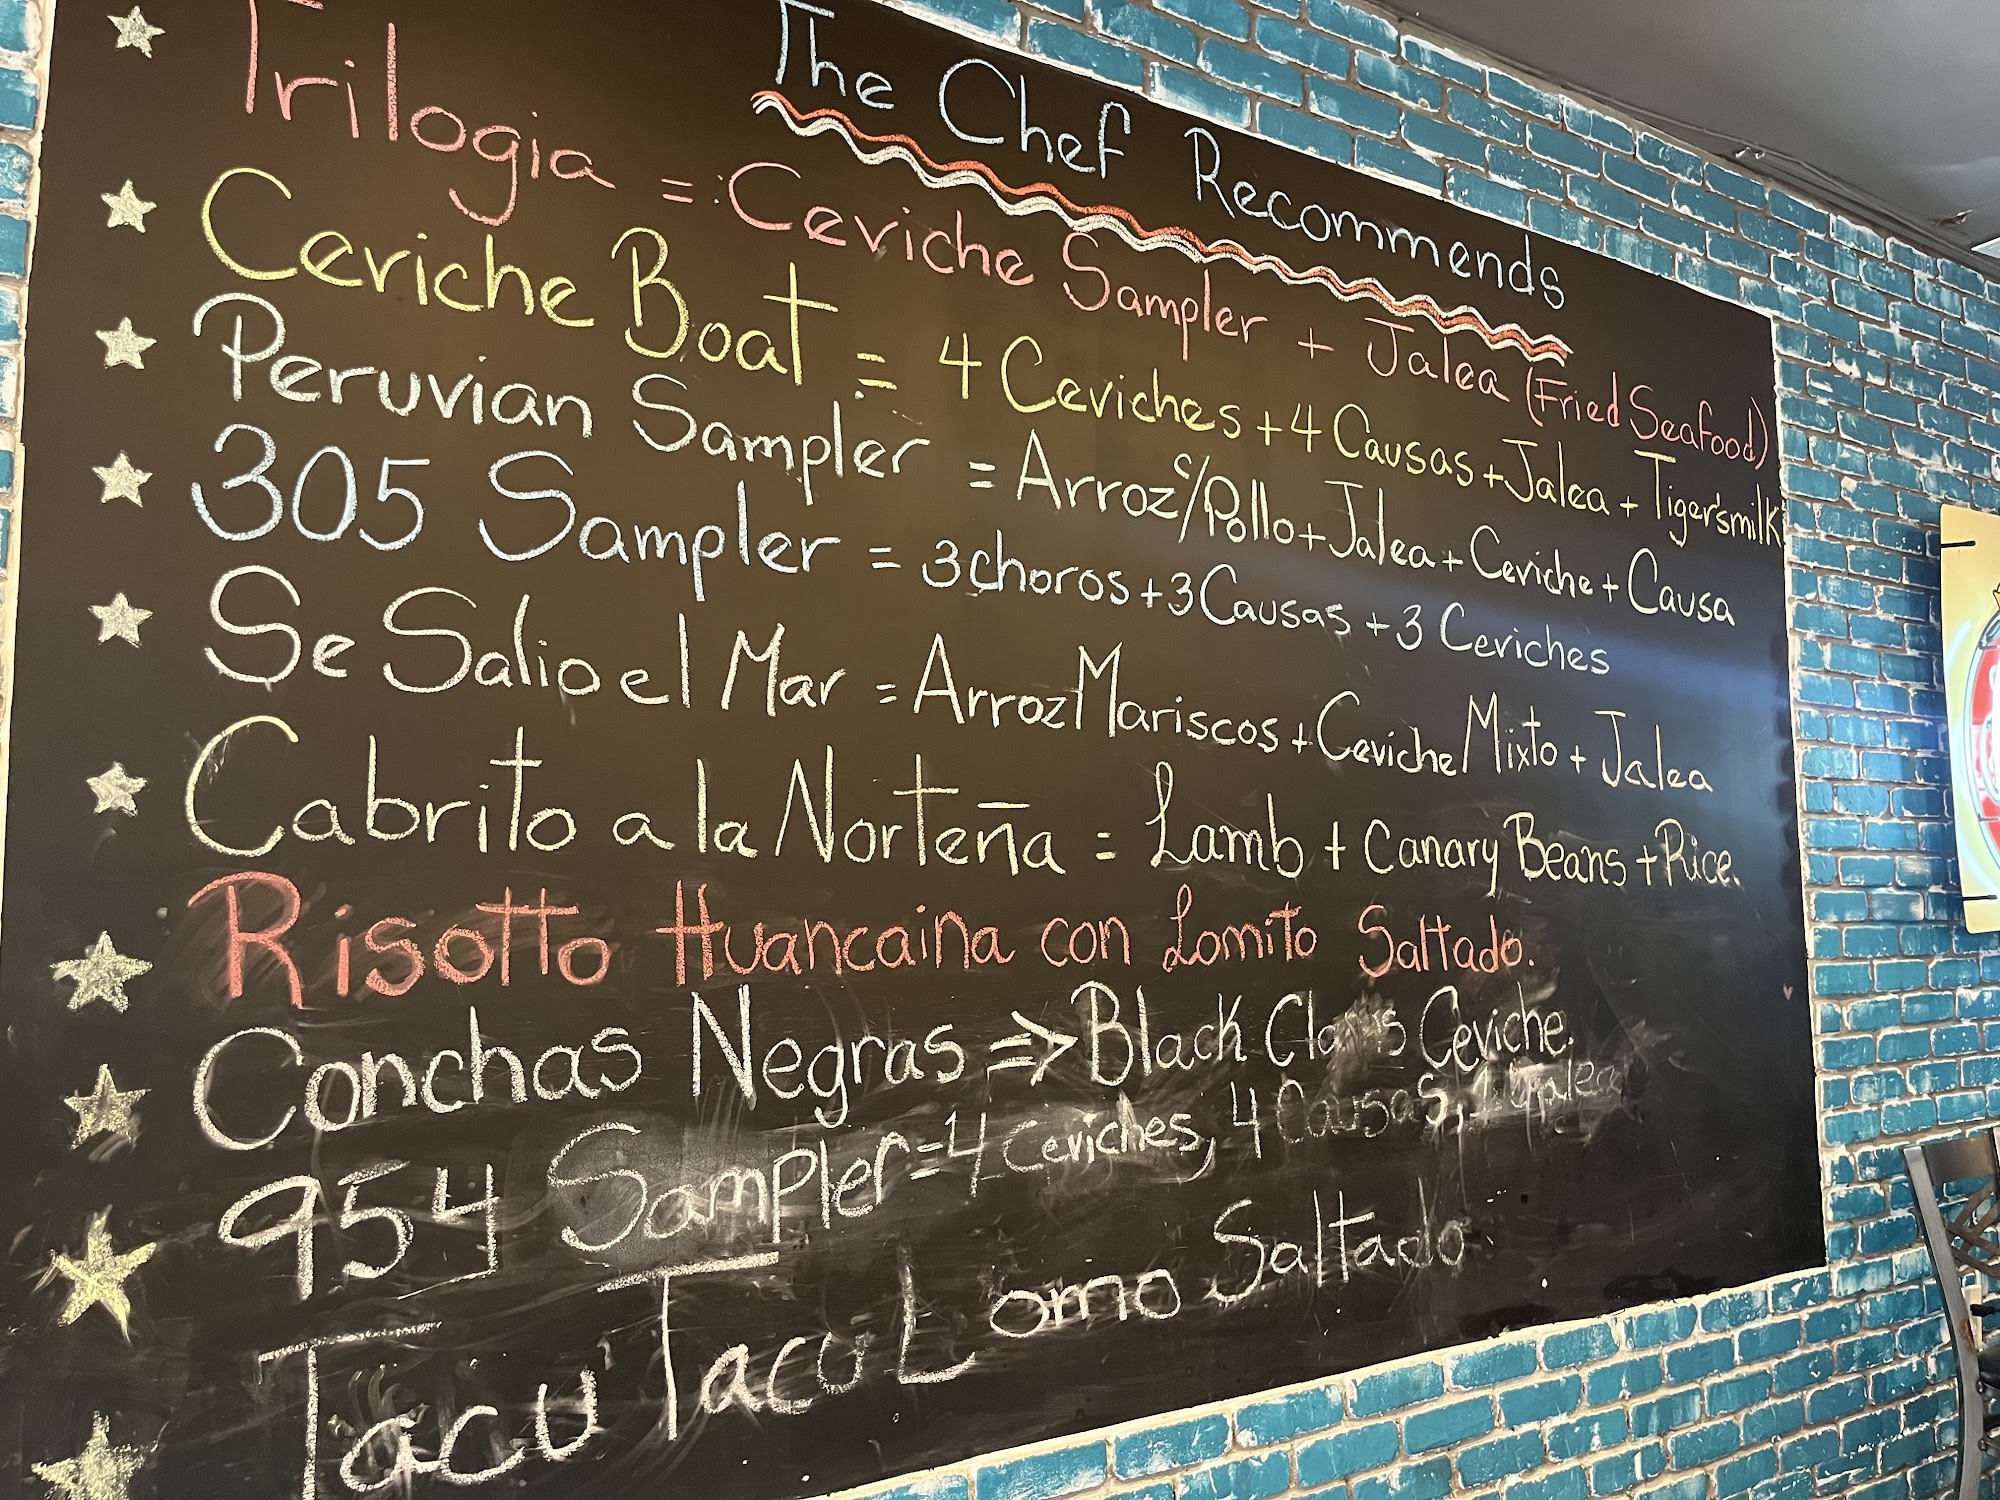 The Chef Recommends
Trilogia = Ceviche Sampler + Jalea (Fried Seafood)
Ceviche Boat = 4 Ceviches + 4 Causas + Jalea + Tiger'smilk
Peruvian Sampler = Arroz c/Pollo + Jalea + Ceviche + Causa
305 Sampler = 3 choros + 3 Causas + 3 Ceviches
Se Salio el Mar = Arroz Mariscos + Ceviche Mixto + Jalea
Cabrito a la Norteña = Lamb + Canary Beans + Rice.
Risotto Huancaina con Lomito Saltado.
Conchas Negras => Black Ceviche.
954 Sampler = 4 Ceviches, 4 Causas, 1
Tacu Tacu Lomo Saltado